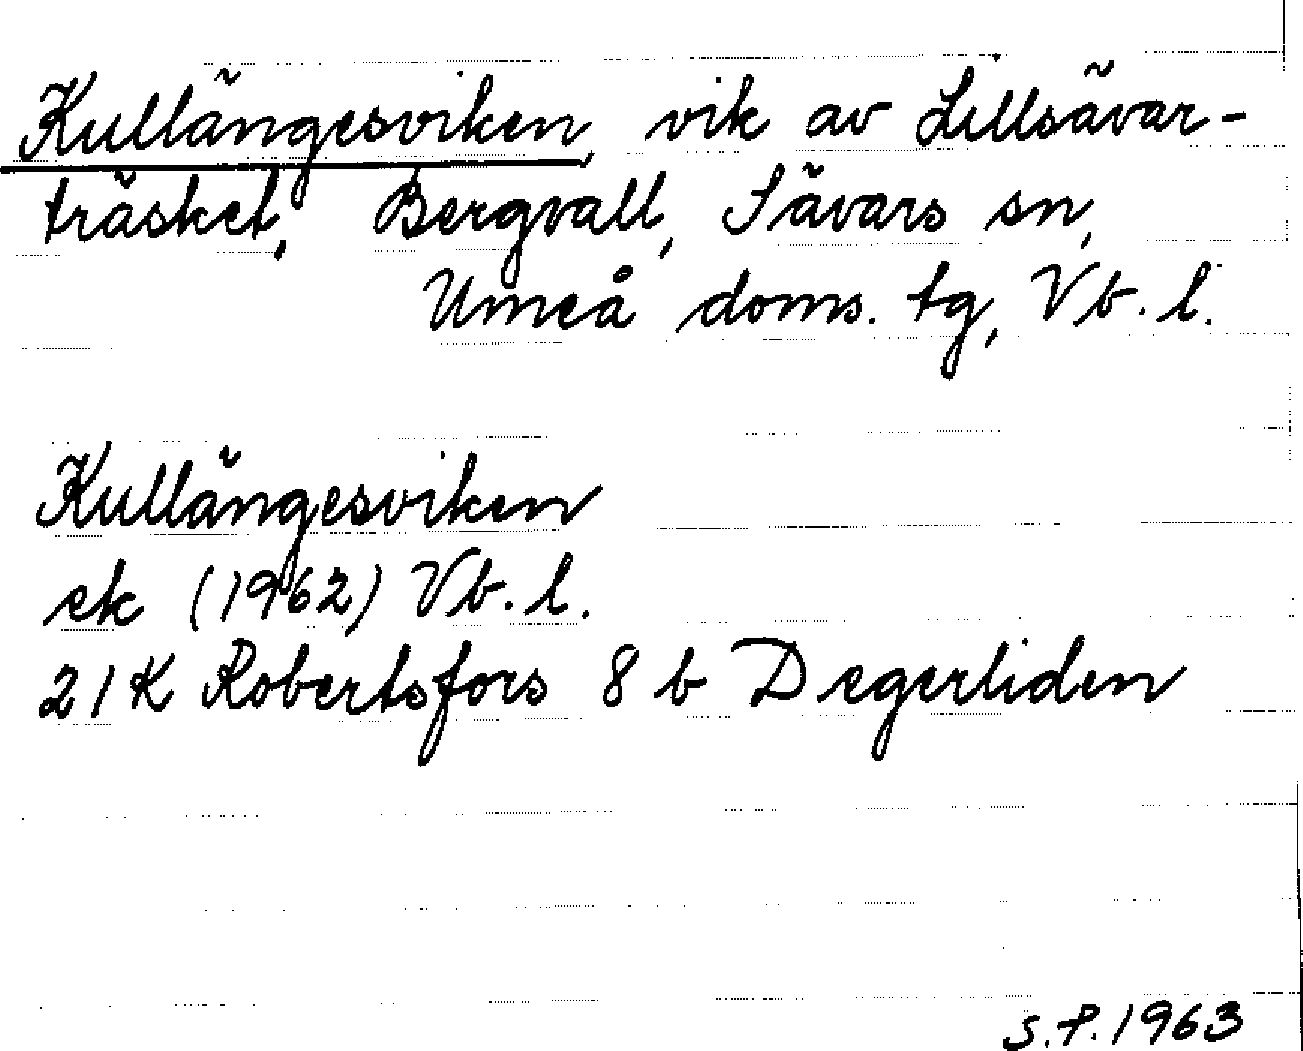 Kullängesviken, vik av Lillsävar-
träsket, Bergvall, Sävars sn,
Umeå doms. tg, Vb. l.
Kullängesviken
ek (1962) Vb. l.
21K Robertsfors 8 b Degerliden
S.P. 1963